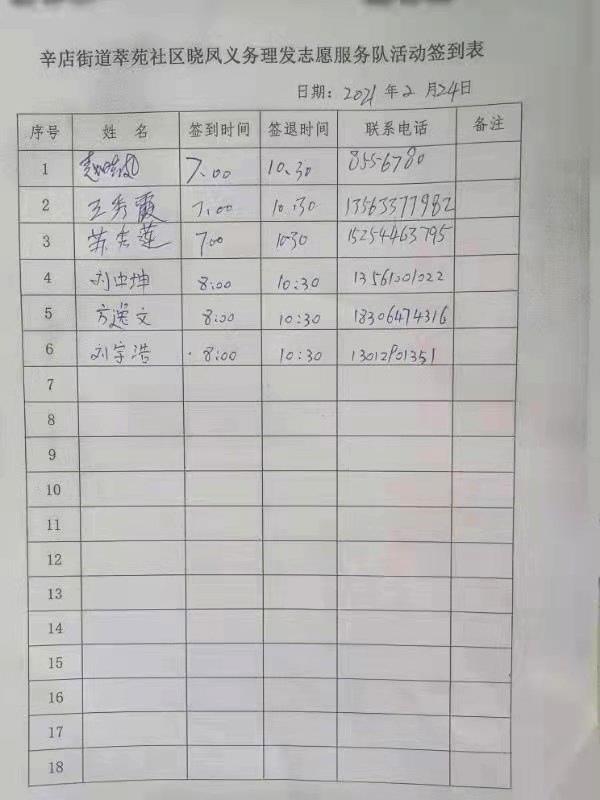 辛店街道萃苑社区晓凤义务理发志愿服务队活动签到表
日期：2021年2月24日
序号 姓名 签到时间 签退时间 联系电话 备注
1 7.00 10.30 8556780
2 王秀霞 7.00 10:30 13563377982
3 苏秀莲 7.00 10:30 15254463795
4 刘忠坤 8:00 10:30 13561001022
5 方逸文 8:00 10:30 18306474316
6 刘宇浩 8:00 10:30 13012901351
7
8
9
10
11
12
13
14
15
16
17
18